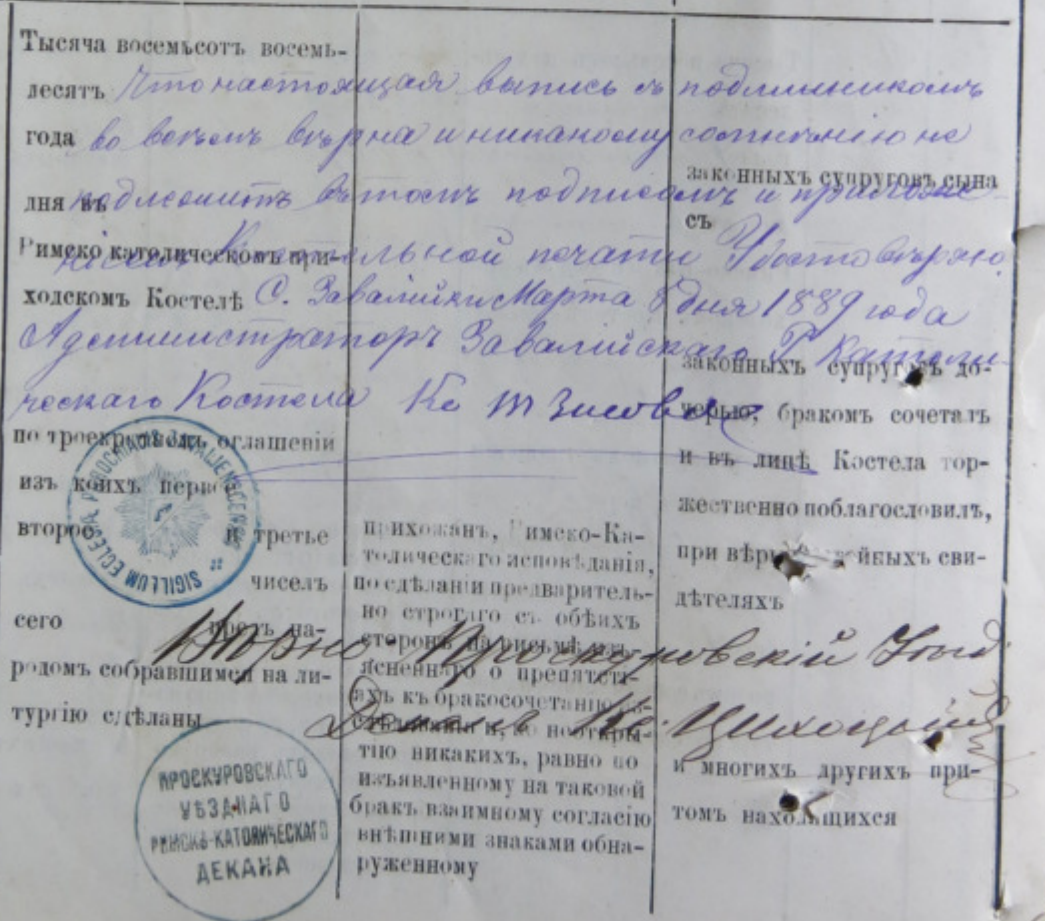 Тысяча восемьсотъ восемь-
десятъ
года
дня въ
Римско католическомъ при-
ходскомъ Костелѣ
по троекратномъ оглашеніи
изъ коихъ перво
второе и третье
чиселъ
сего предъ на-
родомъ собравшимся на ли-
тургію сдѣланы
прихожан, Римско-Ка-
толическаго исповѣданія,
по сдѣланіи предваритель-
но строгаго съ обѣихъ
сторонъ на письмѣ изъ-
ясненнаго о препятстві-
ахъ къ бракосочетанію
и, по неоткры-
тію никакихъ, равно по
изъявленному на таковой
бракъ взаимному согласію
внѣшними знаками обна-
руженному
законныхъ супруговъ сына
съ
законныхъ супруговъ до-
черью, бракомъ сочеталъ
и въ лицѣ Костела тор-
жественно поблагословилъ,
при сви-
дѣтеляхъ
и многихъ другихъ при-
томъ находящихся
Что настоящая выпись съ подлинникомъ
во всемъ вѣрна и никакому сомнѣнію не
подлежитъ въ томъ подписомъ и приложе-
ніемъ Костельной печати Удостовѣряю
С. Завалийки Марта 8 дня 1889 года
Администраторъ Завалийскаго Р Католи-
ческаго Костела Кс
Вѣрно Проскуровскій Уѣзд.
Деканъ Кс. Цихоцкій
SIGILLUM ECCLESIAE PAROCHIALIS ZAVALIJENCENSIS
ПРОСКУРОВСКАГО
УѢЗДНАГО
РИМСКО-КАТОЛИЧЕСКАГО
ДЕКАНА